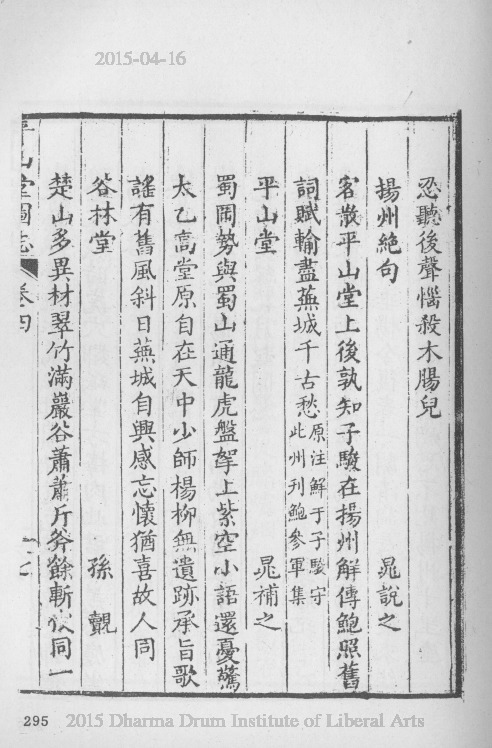 2015-04-16
忍聽後聲惱殺木腸兒
揚州絶句 晁說之
客散平山堂上後孰知子駿在揚州解傳鮑照舊
詞賦輸盡蕪城千古愁原注鮮于子駿守此州刊鮑參軍集
平山堂 晁補之
蜀岡勢與蜀山通龍虎盤挐上紫空小語還憂驚
太乙高堂原自在天中少師楊柳無遺跡承旨歌
謠有舊風斜日蕪城自興感忘懷猶喜故人同
谷林堂 孫覿
楚山多異材翠竹滿巖谷蕭蕭斤斧餘斬伐同一
平山堂圖志 卷四
295
2015 Dharma Drum Institute of Liberal Arts